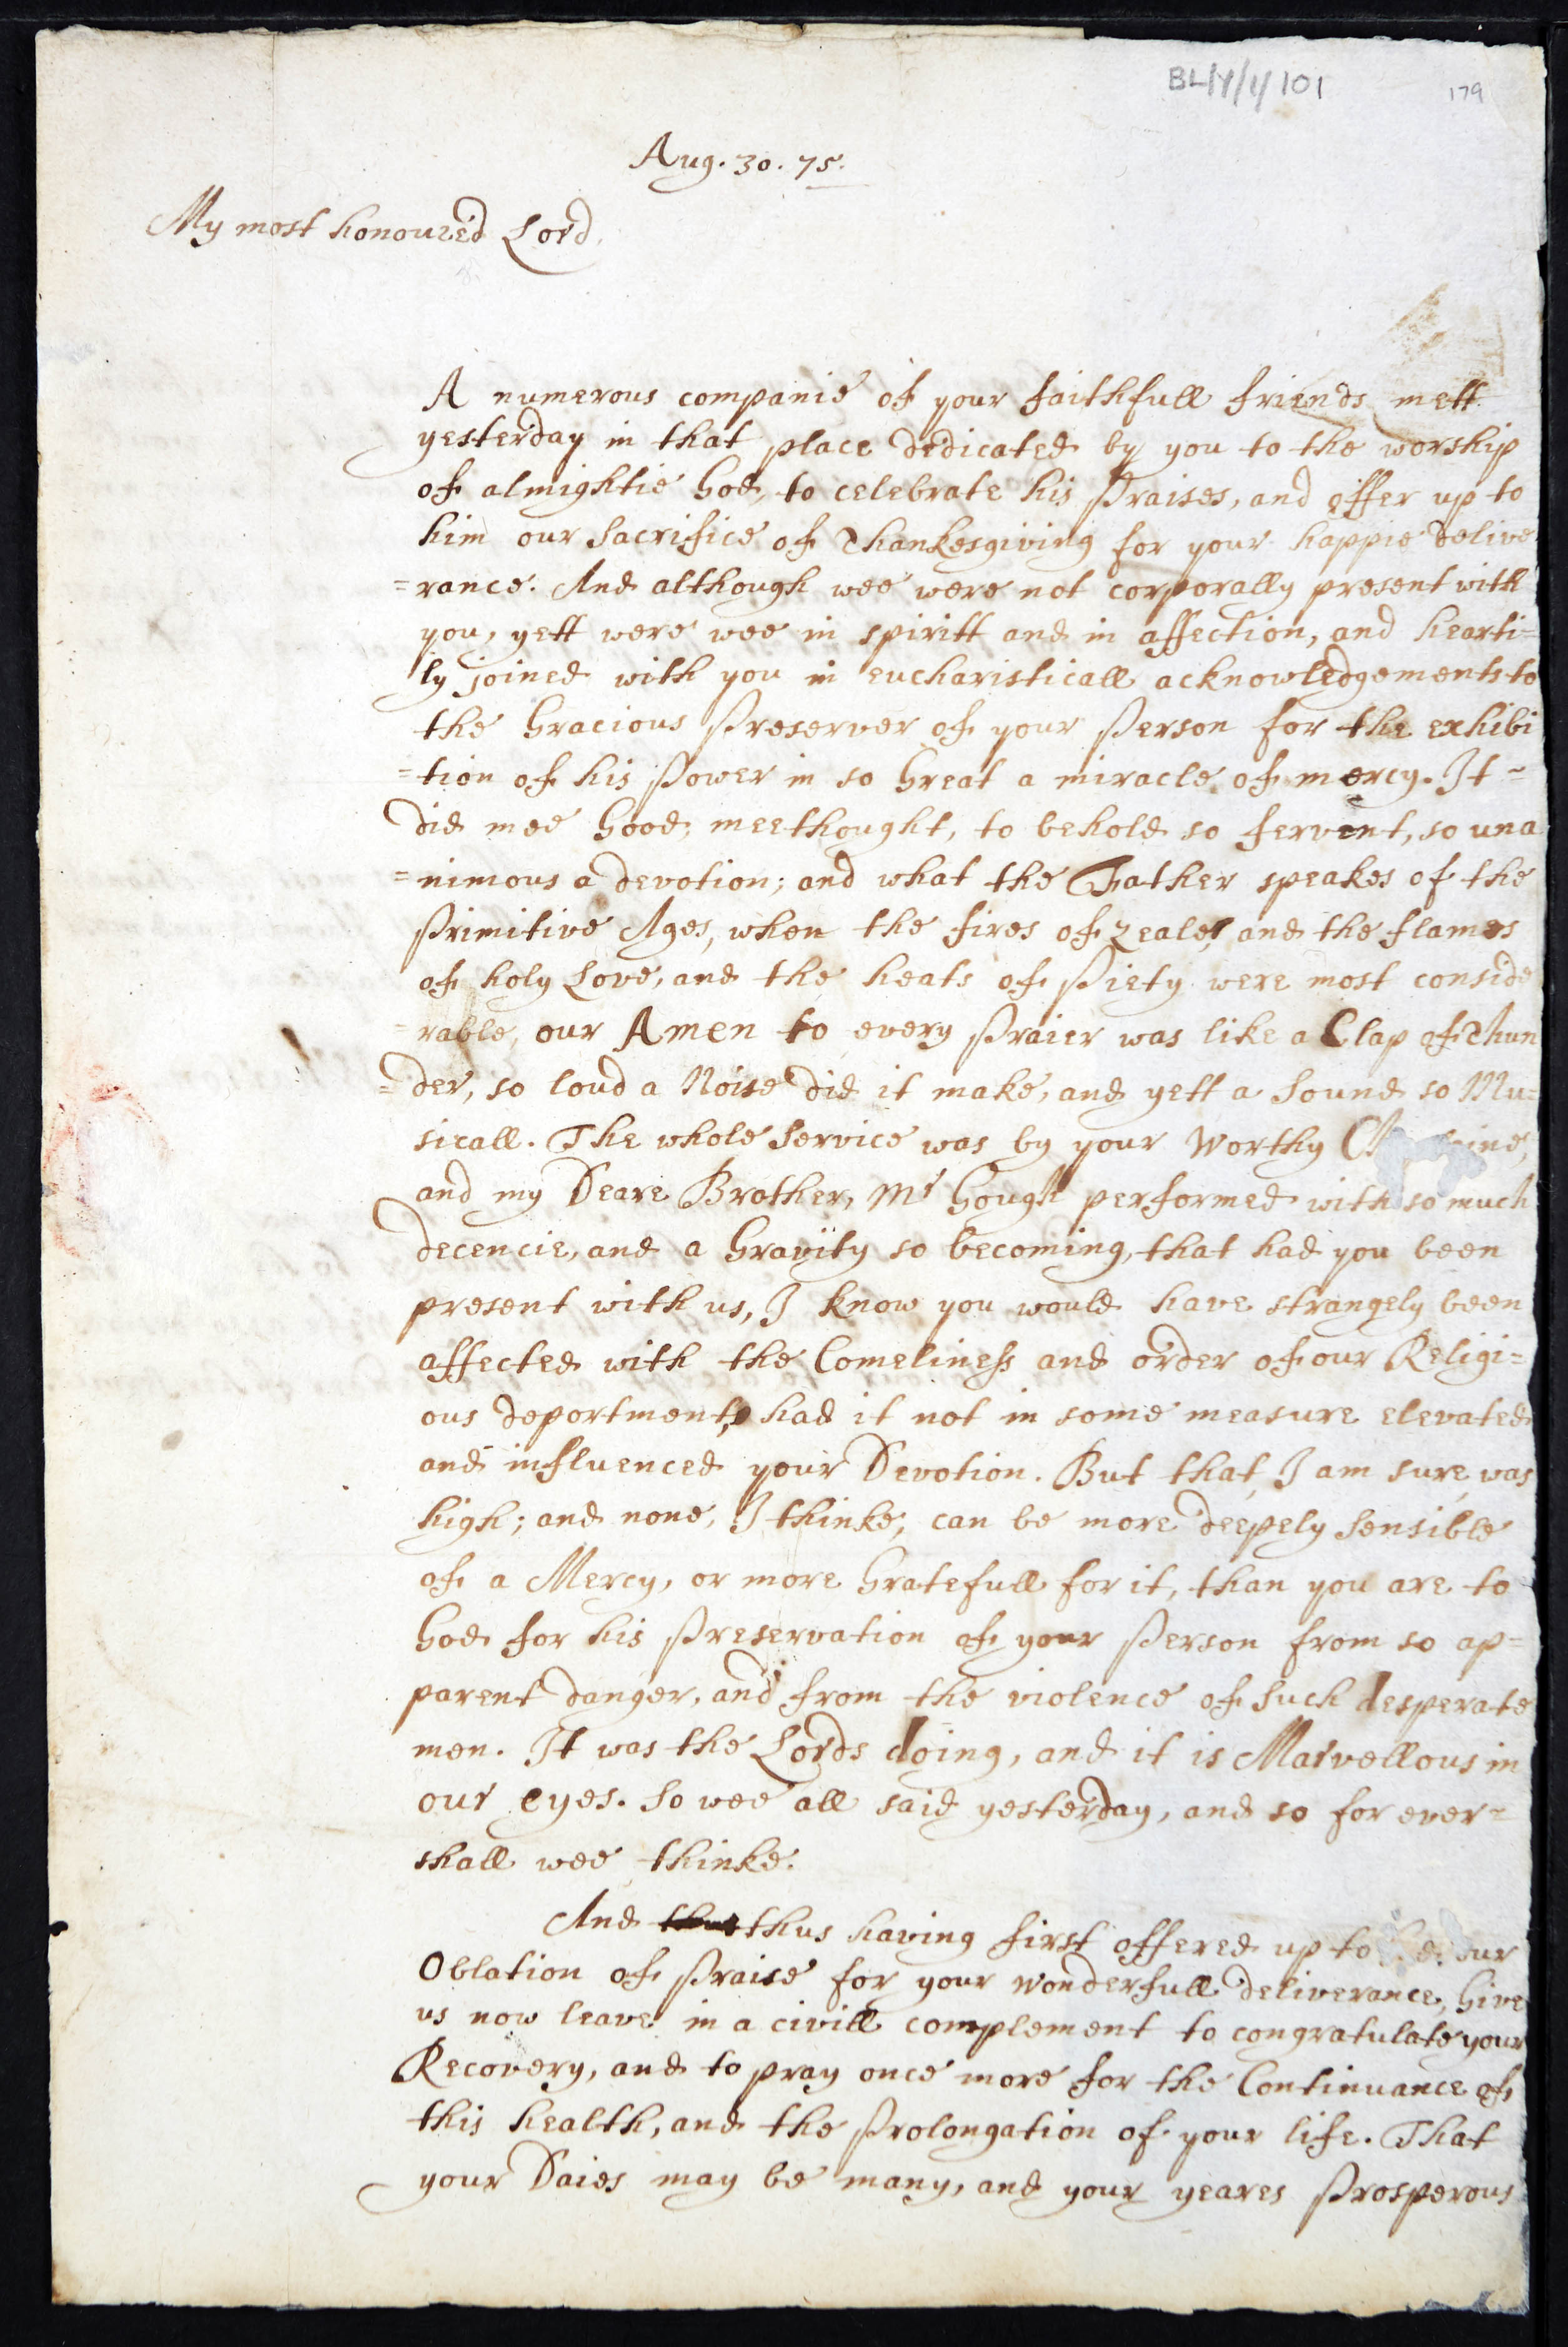 BL/Y/1/101
179
Aug. 30. 75.
My most honoured Lord,
A numerous companie of your faithfull friends mett
yesterday in that place dedicated by you to the worship
of almightie God, to celebrate his Praises, and offer up to
him our Sacrifice of Thankesgiving for your happie delive
=rance. And although wee were not corporally present with
you, yett were wee in spiritt and in affection, and hearti=
ly joined with you in eucharisticall acknowledgements to
the Gracious Preserver of your Person for the exhibi
=tion of his Power in so Great a miracle of mercy. It=
did mee Good, meethought, to behold so fervent, so una
=nimous a devotion; and what the Father speakes of the
Primitive Ages, when the fires of zeale, and the flames
of holy Love, and the heats of Piety were most conside
=rable, our Amen to every Praier was like a Clap of Thun
=der, so loud a Noise did it make, and yett a Sound so Mu=
sicall. The whole Service was by your Worthy
and my Deare Brother, Mr Gough performed with so much
decencie, and a Gravity so becoming, that had you been
present with us, I know you would have strangely been
affected with the Comeliness and order of our Religi=
ous deportment, had it not in some measure elevated
and influenced your Devotion. But that, I am sure, was
high; and none, I thinke, can be more deepely Sensible
of a Mercy, or more Gratefull for it, than you are to
God for his Preservation of your Person from so ap=
parent danger, and from the violence of Such desperate
men. It was the Lords doing, and it is Marvellous in
our eyes. So wee all said yesterday, and so for ever=
shall wee thinke.
And thus having first offered up to our
Oblation of Praise for your wonderfull deliverance, Give
us now leave in a civill complement to congratulate your
Recovery, and to pray once more for the Continuance of
this health, and the Prolongation of your life. That
your Daies may be many, and your yeares Prosperous